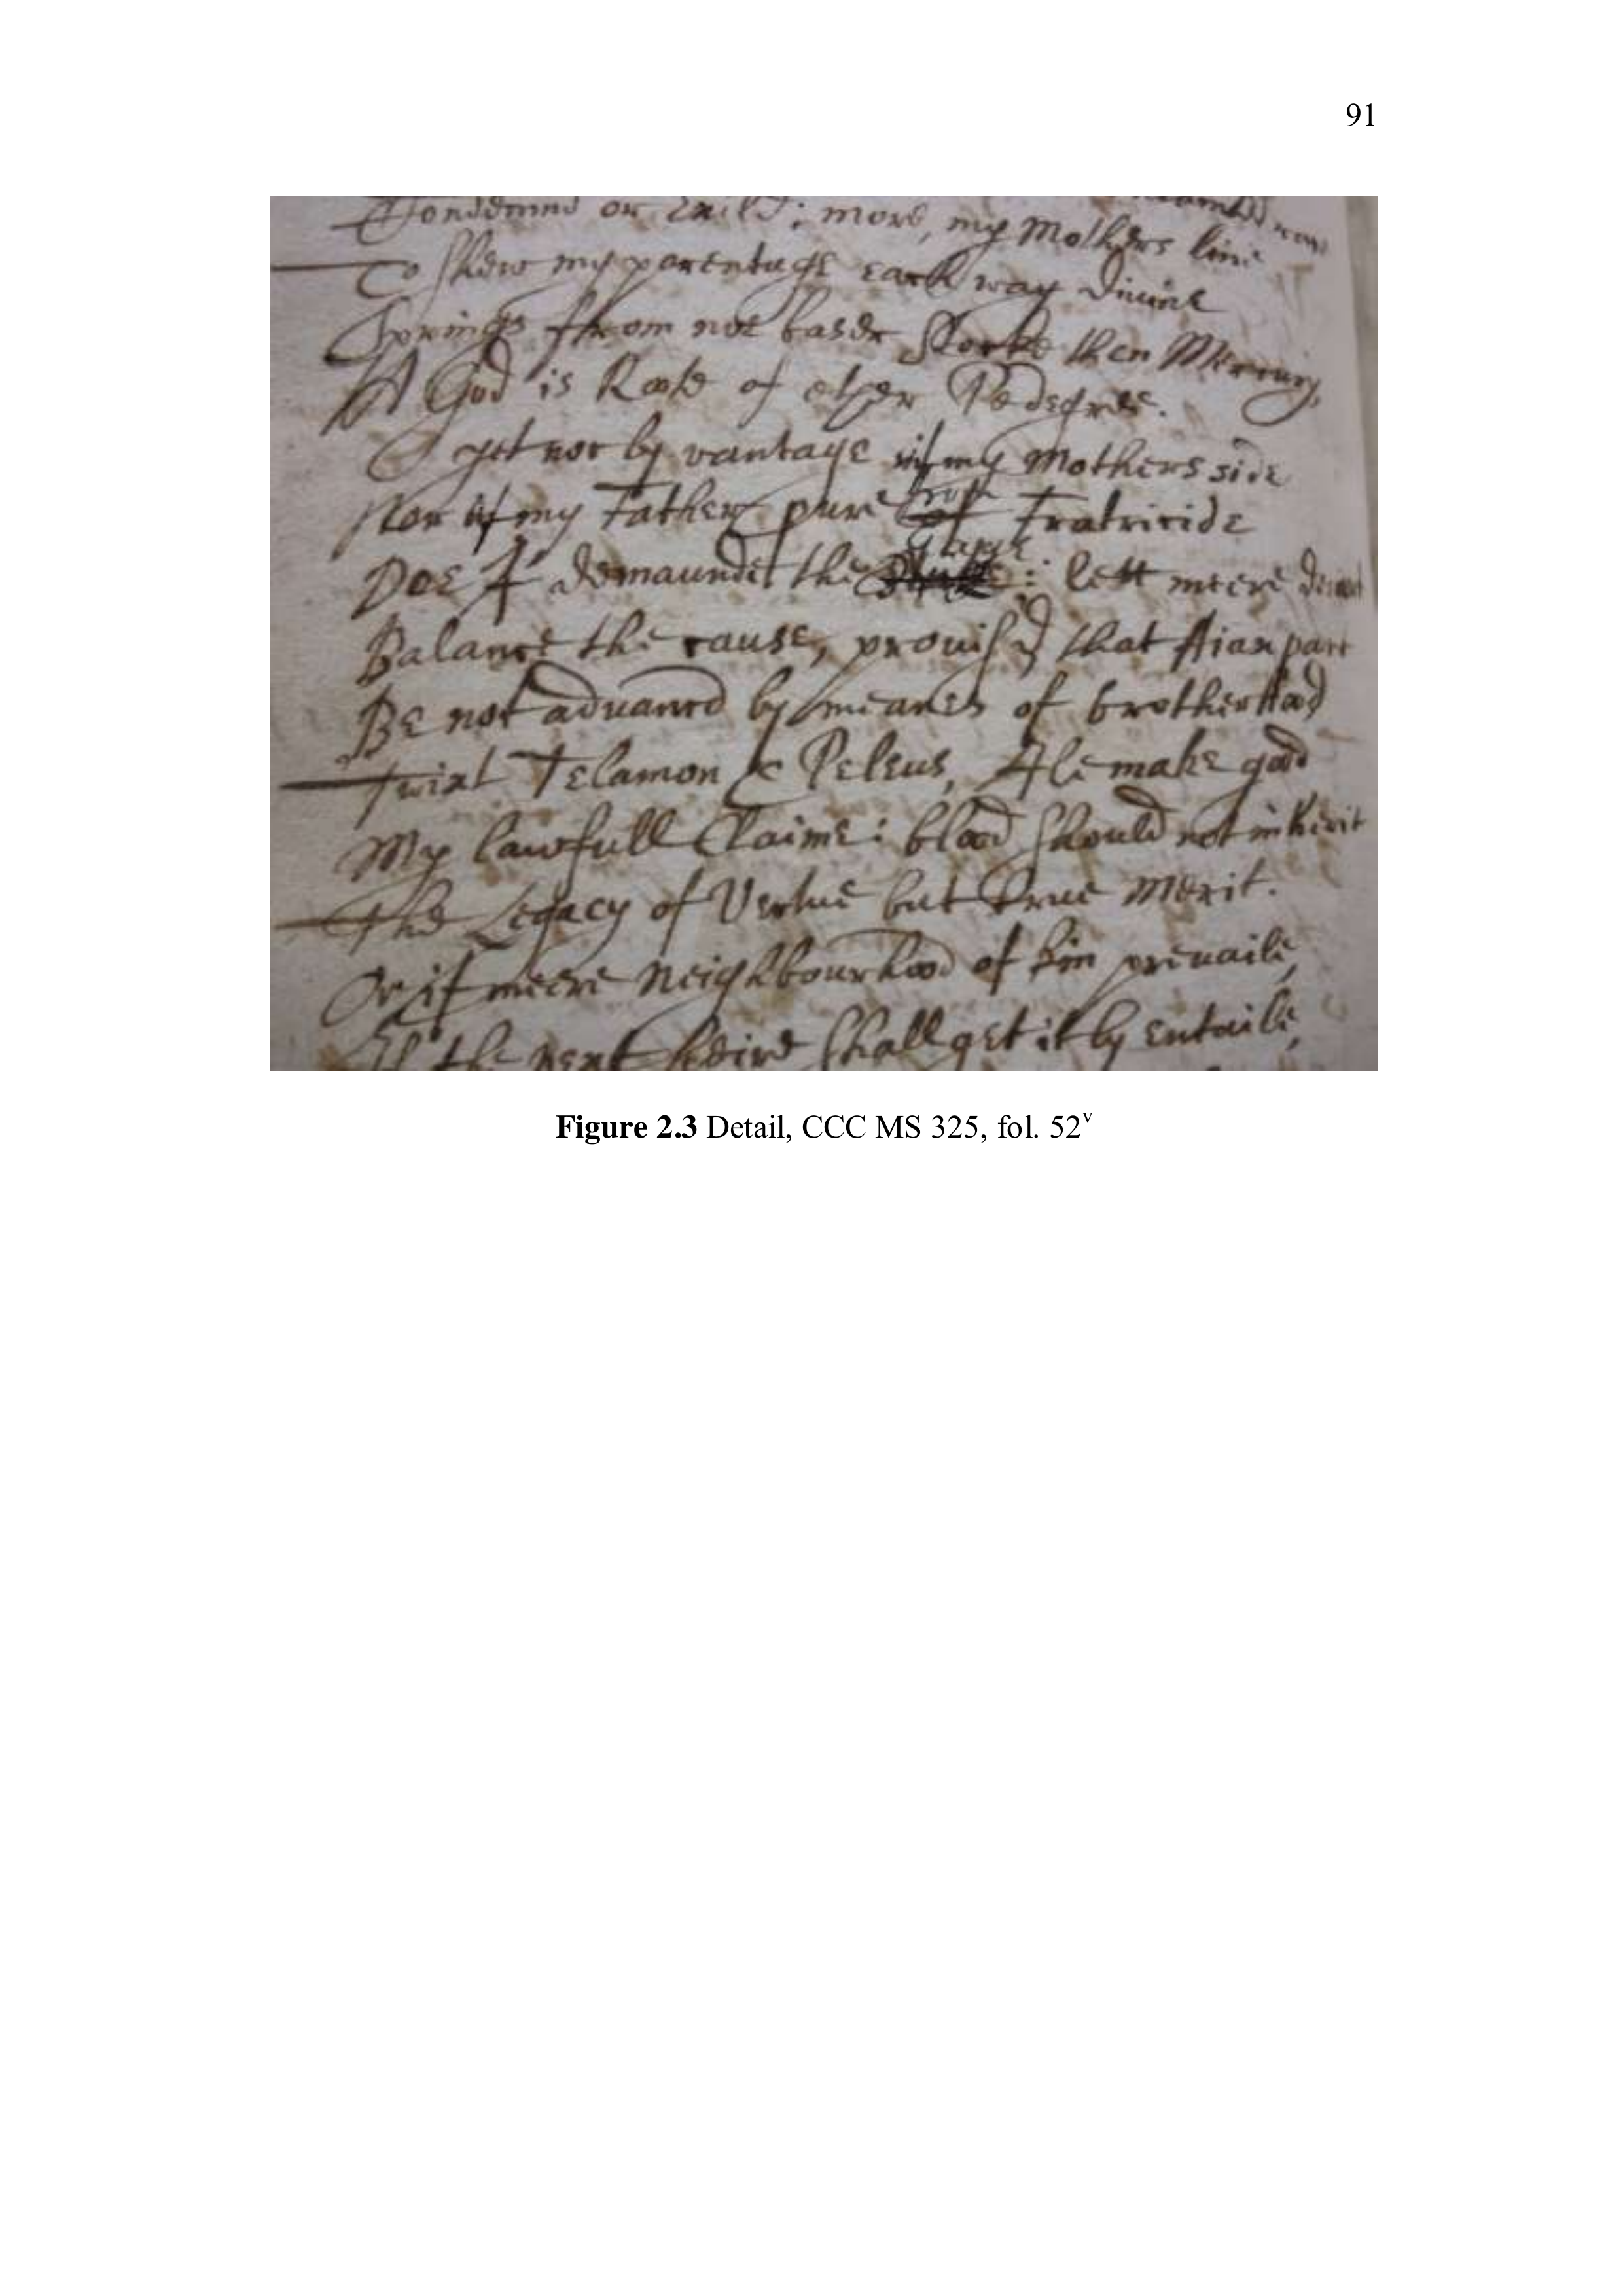 91
Condemnd or Exild; more, my Mothers line
To shew my parentage each way divine
Springs from not baser Stocke then Mercury,
A God is Roote of ether Pedegree.
yet nor by vantage my Mothers side
Nor if my Father pure from of Fratricide
Doe I demaunde the : lett meere desart
Balance the cause, prouis'd that Aiax part
Be not aduancd by meanes of brotherhood
Twixt Telamon & Peleus, Ile make good
My lawfull Claime: blood should not inherit
The Legacy of Vertue but true merit.
Or if meere Neighbourhood of kin preuaile,
the next heire shall get it by entaile,
Figure 2.3 Detail, CCC MS 325, fol. 52v